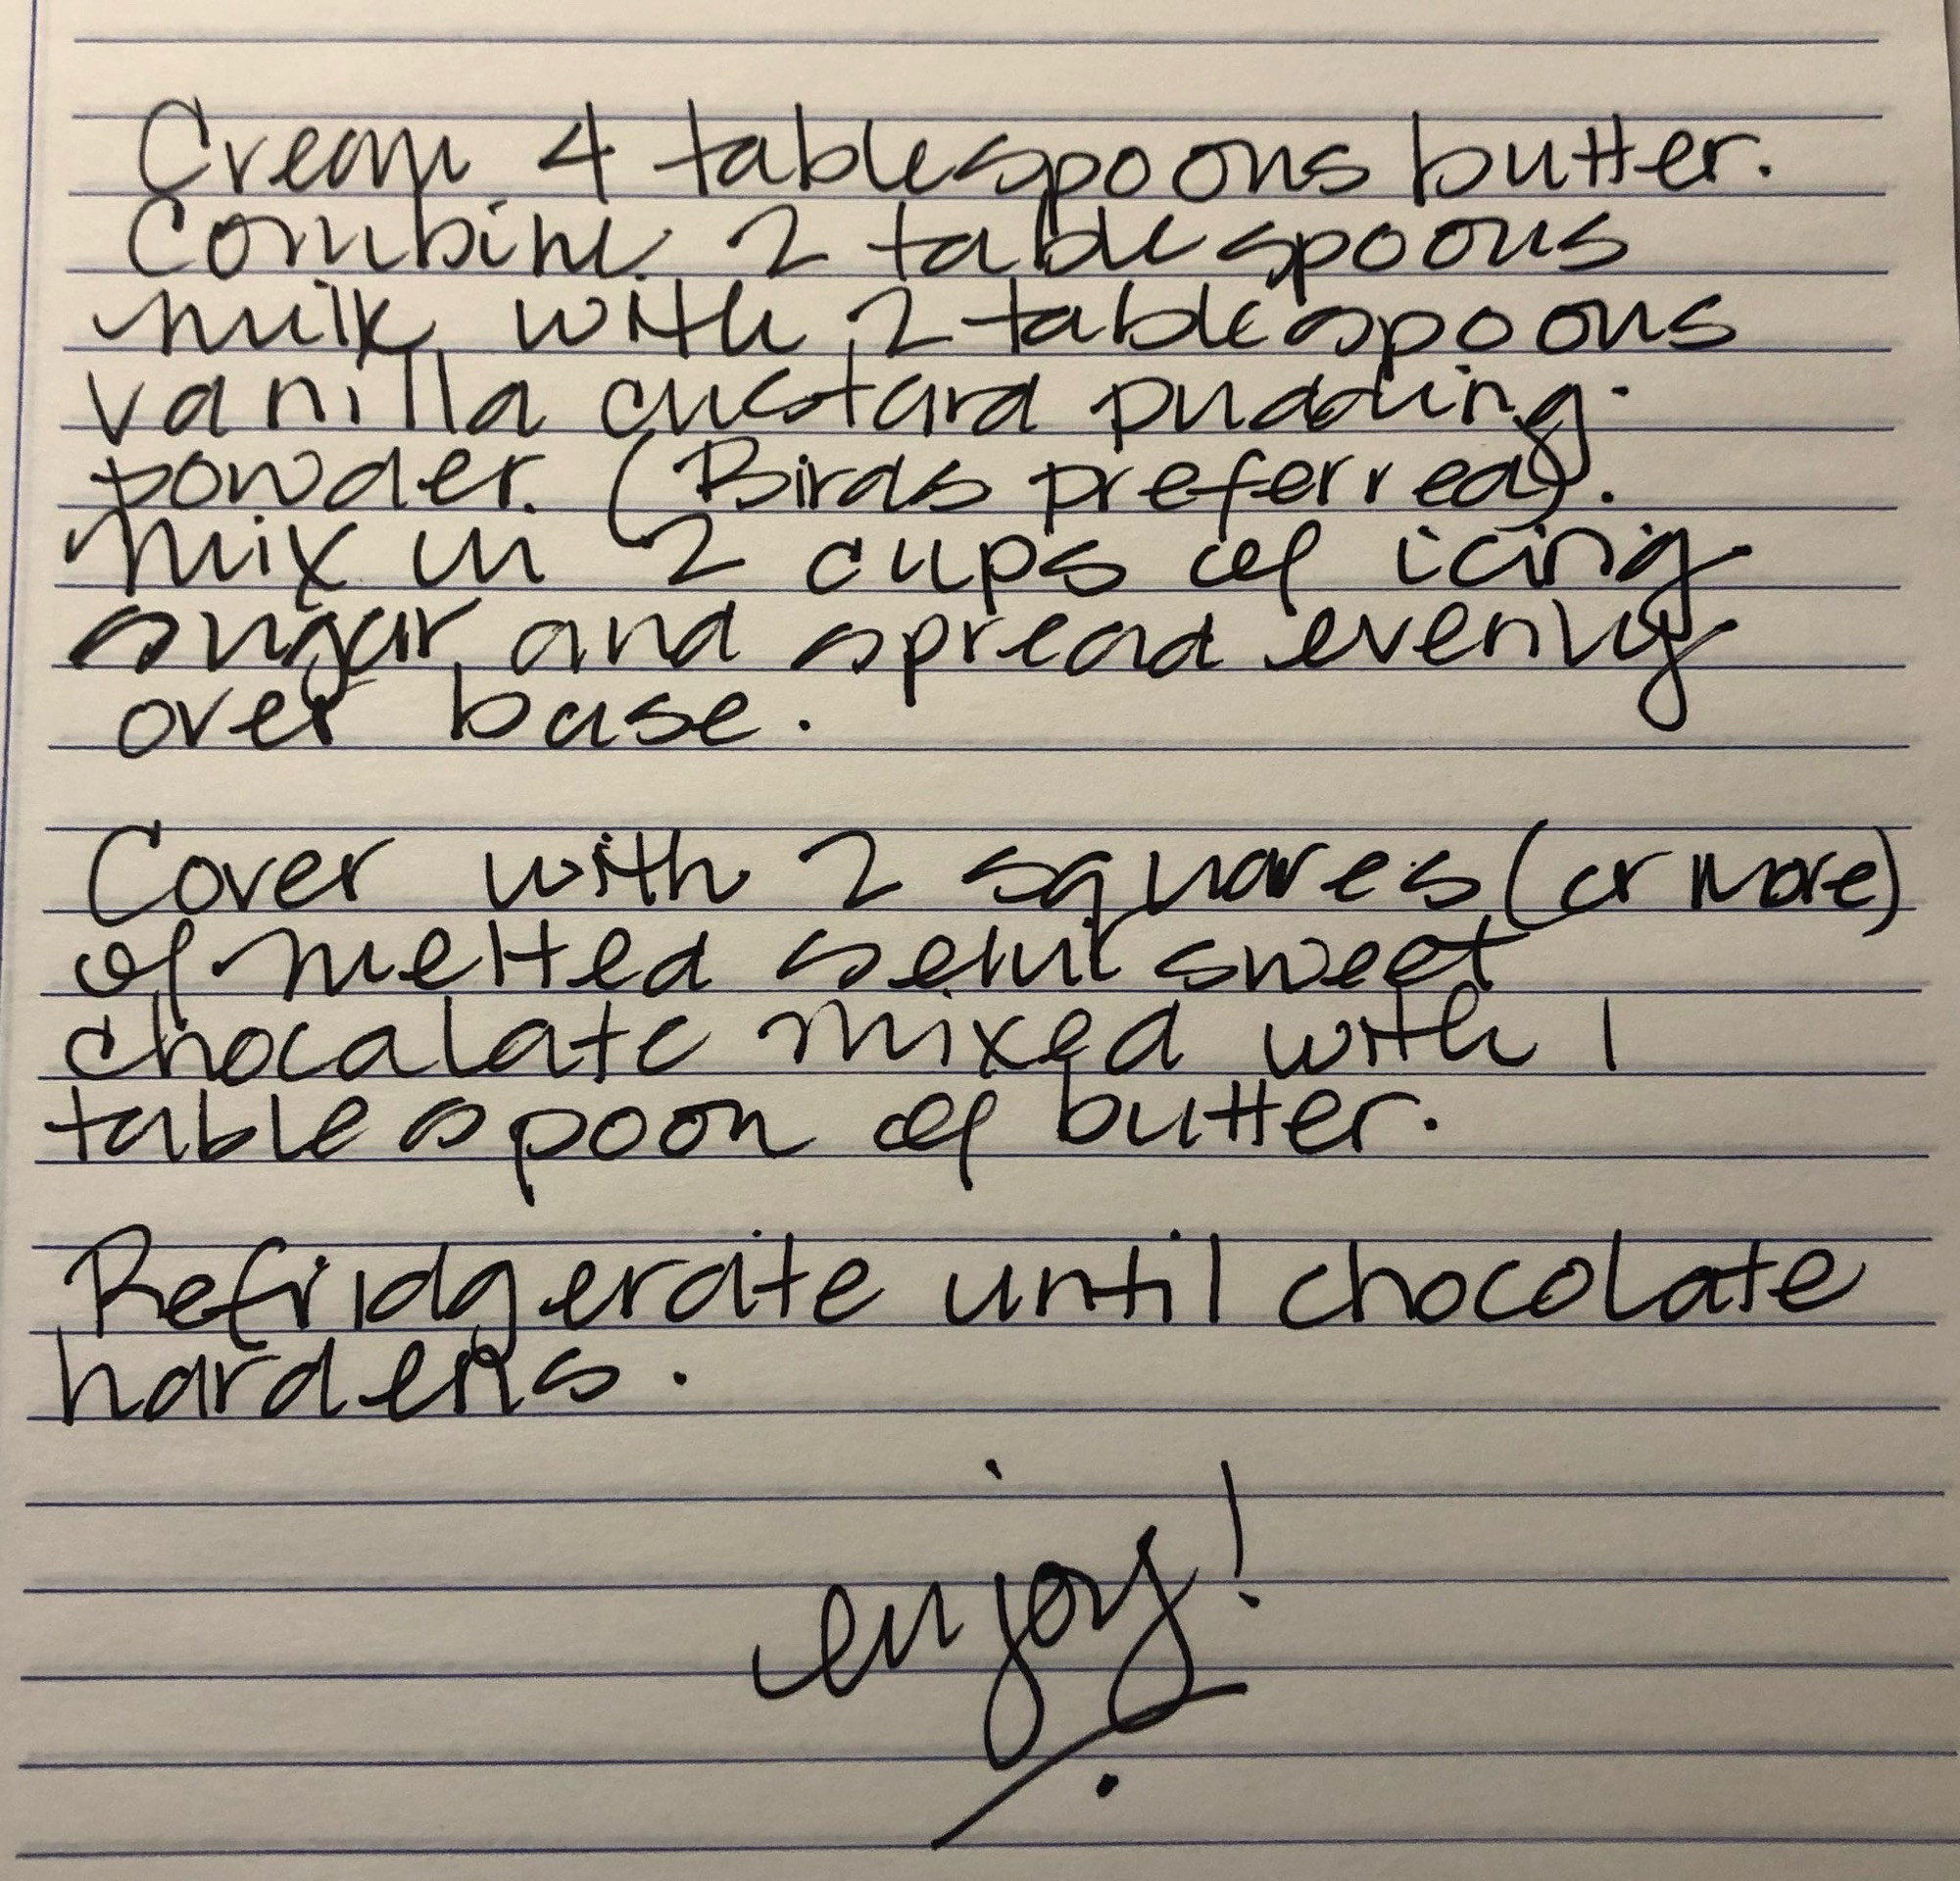 Cream 4 tablespoons butter.
Combine 2 tablespoons
milk with 2 tablespoons
vanilla custard pudding
powder. (Birds preferred).
Mix in 2 cups of icing
sugar and spread evenly
over base.
Cover with 2 squares (or more)
of melted semi sweet
chocolate mixed with 1
tablespoon of butter.
Refridgerate until chocolate
hardens.
enjoy!